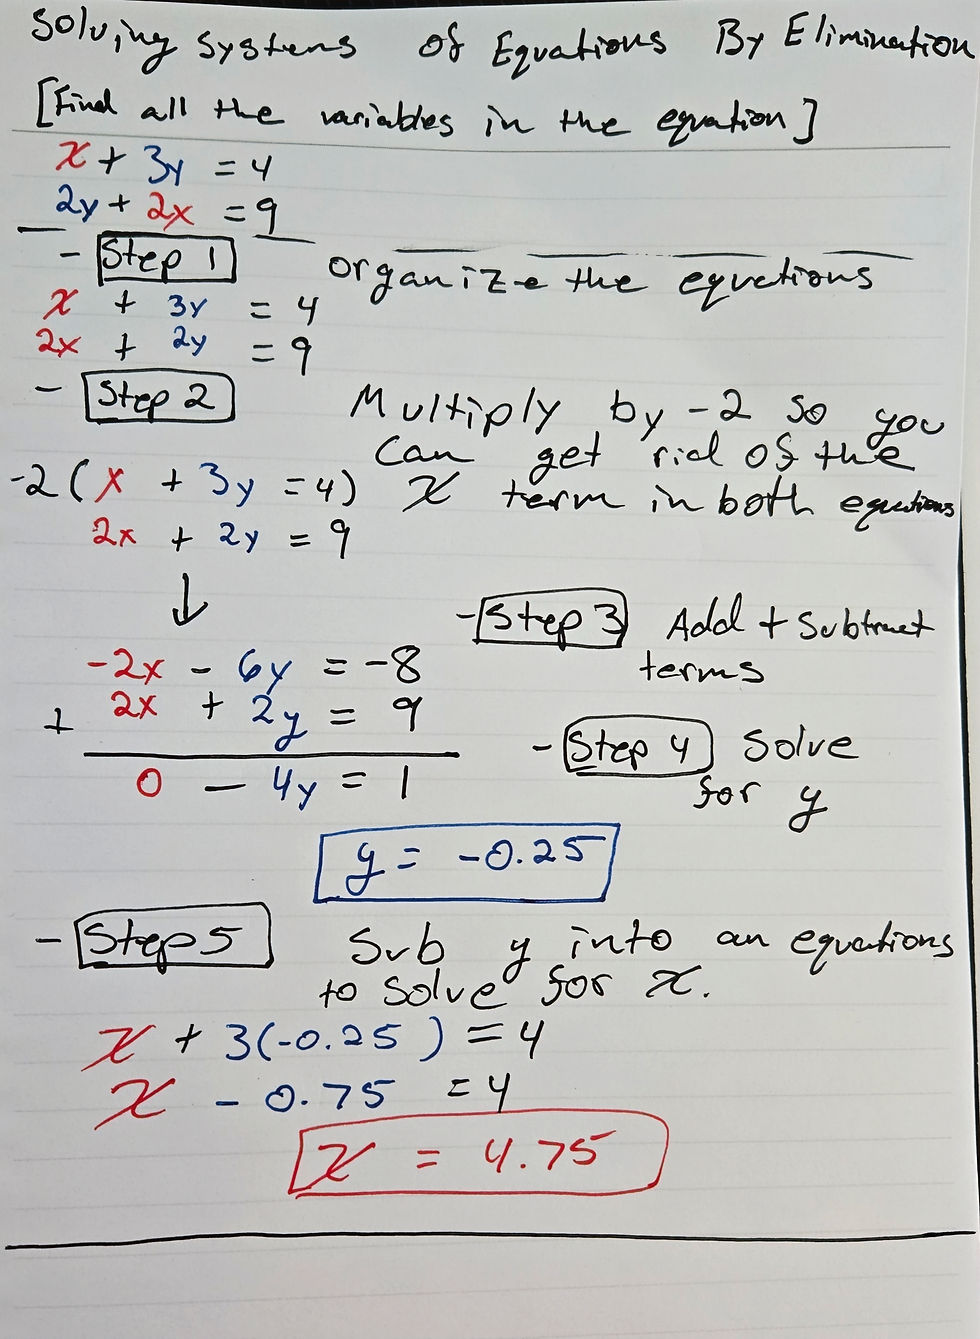 Solving Systems of Equations By Elimination
[Find all the variables in the equation]
x + 3y = 4
2y + 2x = 9
- Step 1 organize the equations
x + 3y = 4
2x + 2y = 9
- Step 2 Multiply by -2 so you
can get rid of the
-2(x + 3y = 4) x term in both equations
2x + 2y = 9
↓
- Step 3 Add + Subtract
terms
-2x - 6y = -8
+ 2x + 2y = 9
- Step 4 Solve
for y
0 - 4y = 1
y = -0.25
- Step 5 Sub y into an equations
to solve for x.
x + 3(-0.25) = 4
x - 0.75 = 4
x = 4.75